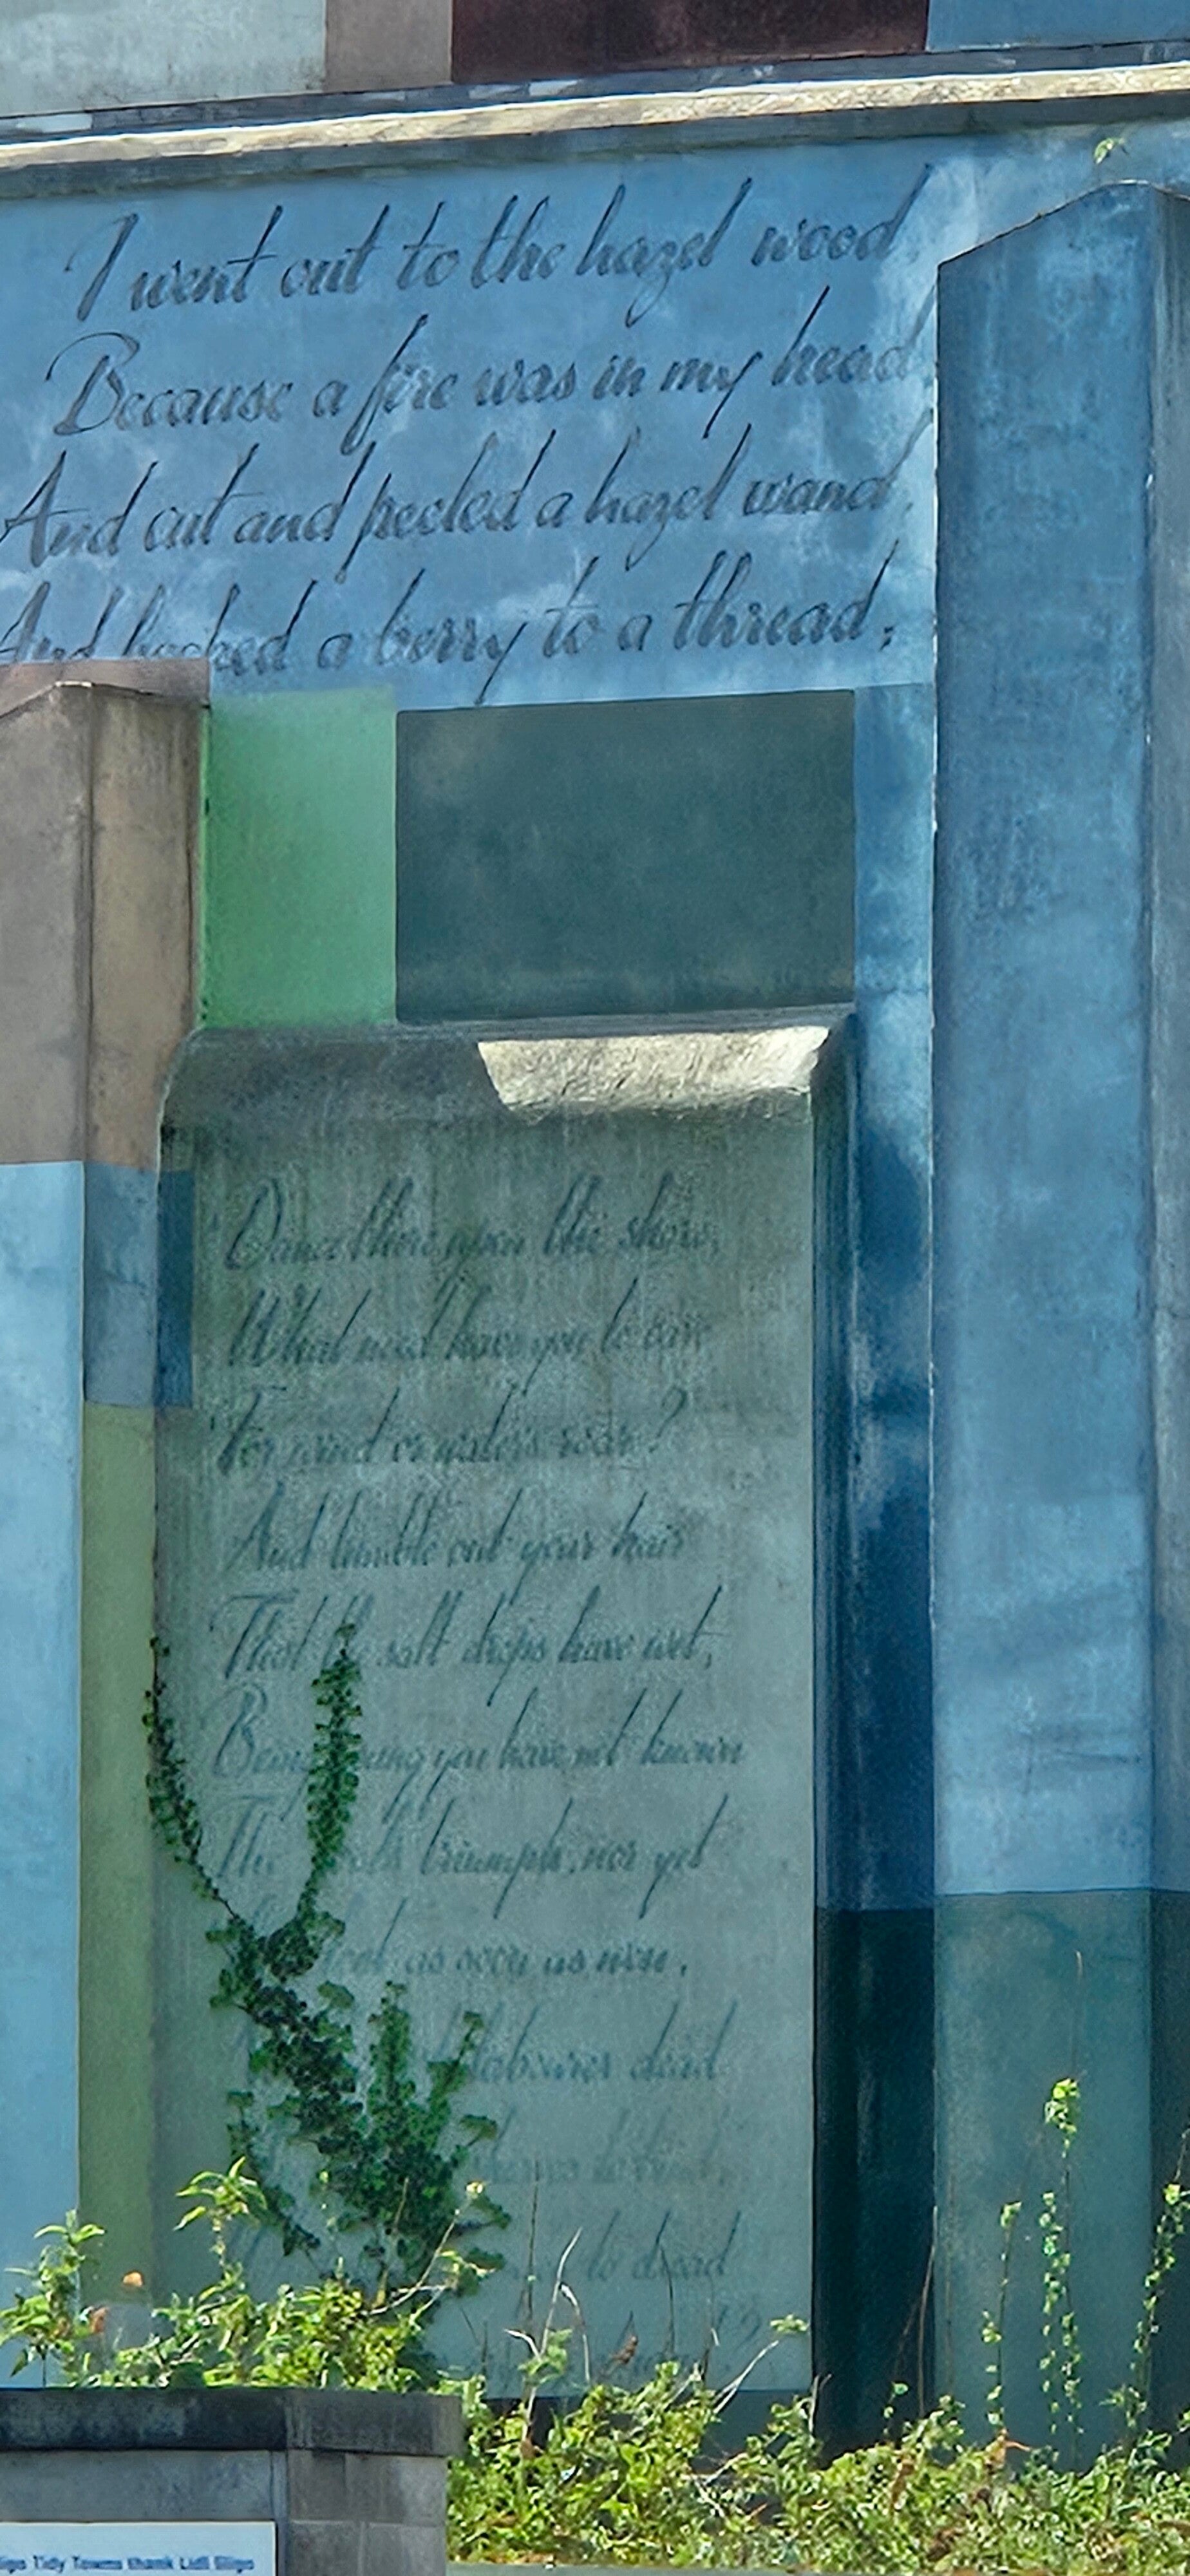 I went out to the hazel wood
Because a fire was in my head
And cut and peeled a hazel wand,
And hooked a berry to a thread;
Dance there upon the shore;
What need have you to care
For wind or water's roar?
And tumble out your hair
That the salt drops have wet;
Being young you have not known
The triumph, nor yet
as soon as won,
labourer dead
to dread
Tidy Towns thank Lidl Sligo